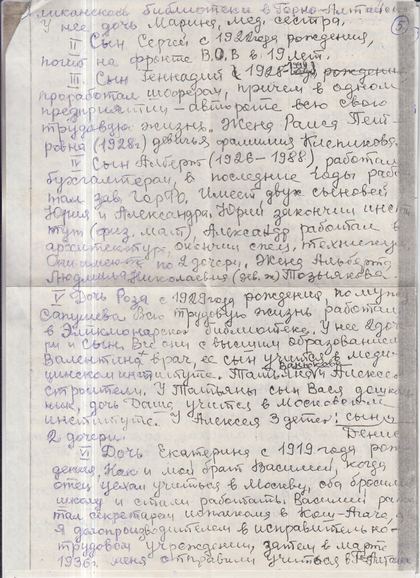 ликанской библиотеки в Горно-Алтайске
5
У неё дочь Марина, мед. сестра.
II Сын Сергей с 1922 года рождения,
погиб на фронте В.О.В в 19 лет.
III Сын Геннадий (1928 рождения
проработал шофером, причем в одном
предприятии – автороте всю свою
трудовую жизнь. Жена Раиса Пет-
ровна (1928г) девичья фамилия
IV Сын Альберт (1926-1988) работал
бухгалтером, в последние годы рабо-
тал зав. ГорФО. Имеет двух сыновей
Юрия и Александра. Юрий закончил инсти
тут (физ. мат), Александр работал в
архитектуре, окончил спец. техникум
Они имеют по 2 дочери. Жена Альберта
Людмила Николаевна (дев. ф.) Позднякова.
V Дочь Роза с 1929 года рождения, по мужу
Сапушева Всю трудовую жизнь работала
в библиотеке. У неё 2 доче
ри и сын. Все они с высшим образованием
Валентина врач, её сын учится в меди-
цинском институте. Татьяна и Алексей
строители. У Татьяны сын Вася дошколь
ник, дочь Даша учится в Московском
институте. У Алексея 3 детей: сын
Денис
2 дочери.
VI Дочь Екатерина с 1919 года рож
дения. Как и мой брат Василий, когда
отец уехал учиться в Москву, оба бросили
школу и стали работать. Василий рабо
тал секретарем исполкома в Кош-Агаче, а
я делопроизводителем в исправительно-
трудовом учреждении, затем в марте
1936г. меня отправили учиться в